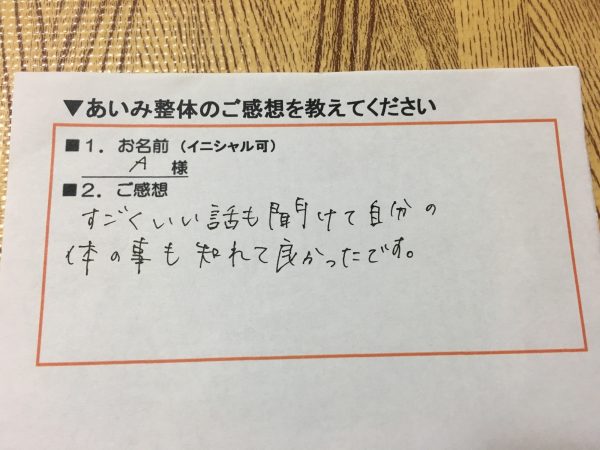 ▼あいみ整体のご感想を教えてください
■1．お名前（イニシャル可）
A 様
■2．ご感想
すごくいい話も聞けて自分の
体の事も知れて良かったです。